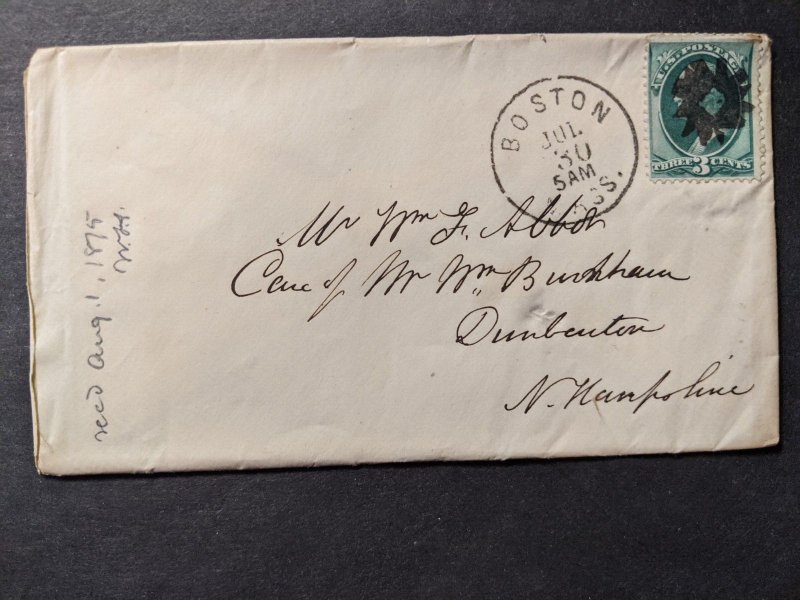 U.S. POSTAGE
THREE 3 CENTS
BOSTON
JUL
30
5AM
MASS.
Mr Wm F. Abbot
Care of Mr Wm Burnham
Dunbarton
N. Hampshire
recd Aug. 1, 1875